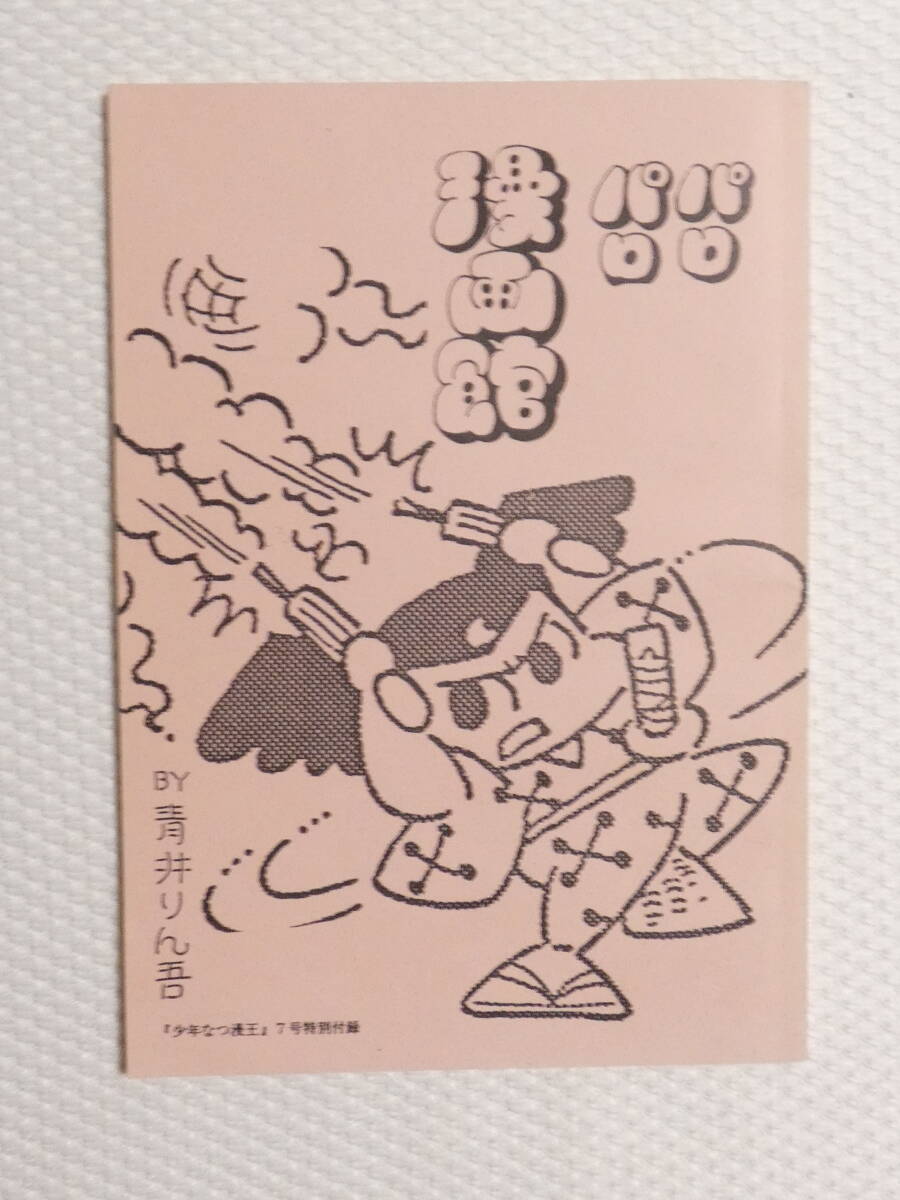 パロ
パロ
漫画館
BY 青井りん吾
『少年なつ漫王』7号特別付録